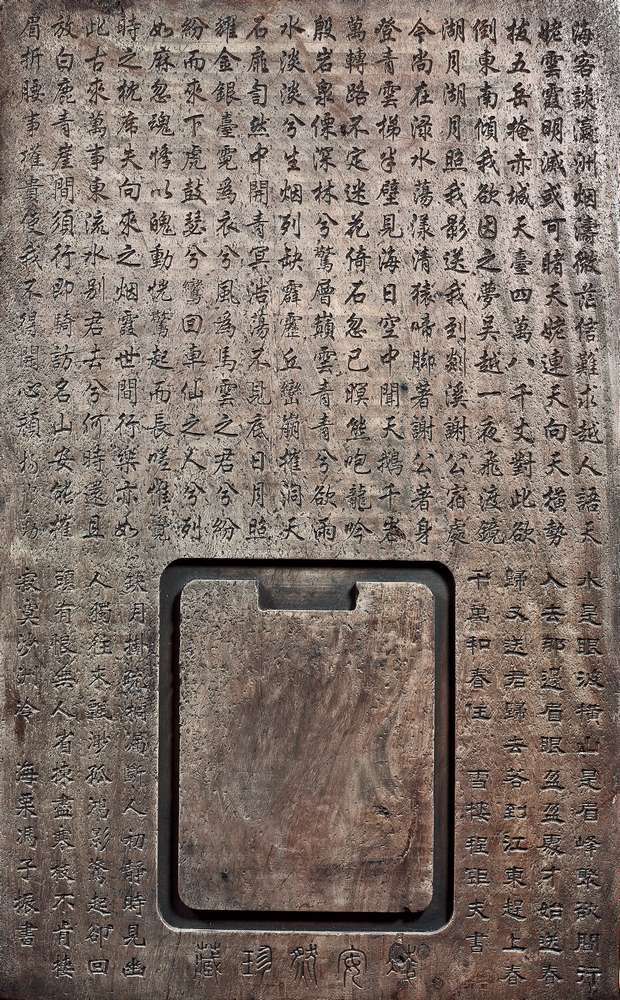 海客談瀛洲烟濤微茫信難求越人語天
姥雲霞明滅或可睹天姥連天向天橫勢
拔五岳掩赤城天臺四萬八千丈對此欲
倒東南傾我欲因之夢吳越一夜飛渡鏡
湖月湖月照我影送我到剡溪謝公宿處
今尚在渌水蕩漾清猿啼脚著謝公著身
登青雲梯半壁見海日空中聞天鵝千岩
萬轉路不定迷花倚石忽已暝熊咆龍吟
殷岩泉慄深林兮驚層巔雲青青兮欲雨
水淡淡兮生烟列缺霹靂丘巒崩摧洞天
石扉訇然中開青冥浩蕩不見底日月照
耀金銀臺霓為衣兮風為馬雲之君兮紛
紛而來下虎鼓瑟兮鸞回車仙之人兮列
如麻忽魂悸以魄動恍驚起而長嗟惟覺
時之枕席失向來之烟霞世間行樂亦如
此古來萬事東流水別君去兮何時還且
放白鹿青崖間須行即騎訪名山安能摧
眉折腰事權貴使我不得開心顏
水是眼波橫山是眉峰聚欲問行
人去那邊眉眼盈盈處才始送春
歸又送君歸去若到江東趕上春
千萬和春住 雪樓程鉅夫書
缺月掛疏桐漏斷人初靜時見幽
人獨往來飄渺孤鴻影驚起卻回
頭有恨無人省揀盡寒枝不肯棲
寂寞沙洲冷 海粟馮子振書
安珍藏